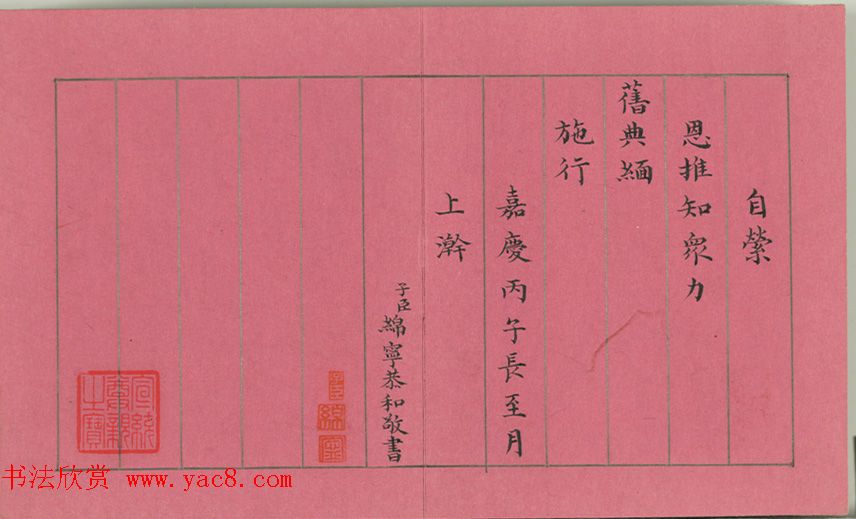 自縈
恩推知眾力
舊典緬
施行
嘉慶丙子長至月
上澣
子臣
綿寧恭和敬書
子臣
綿寧
宣統御覽之寶
书法欣赏 www.yac8.com